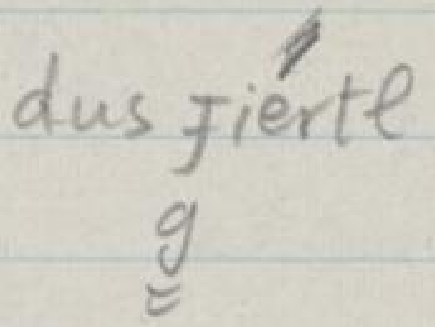 dus ƒiértl
g